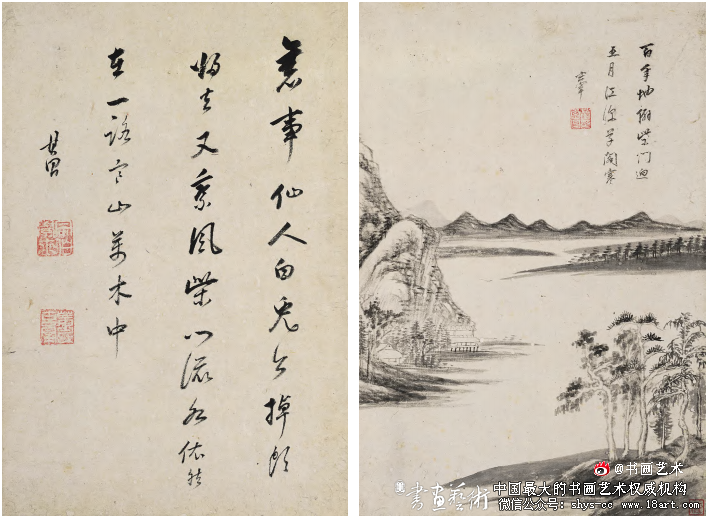 舊事仙人白兔公掉頭
歸去又乘風柴門流水依然
在一路寒山萬木中
其昌
百年地僻柴門迥
五月江深草閣寒
玄宰
@书画艺术
書畫藝術
中国最大的书画艺术权威机构
微信公众号:shys-cc www.18art.com